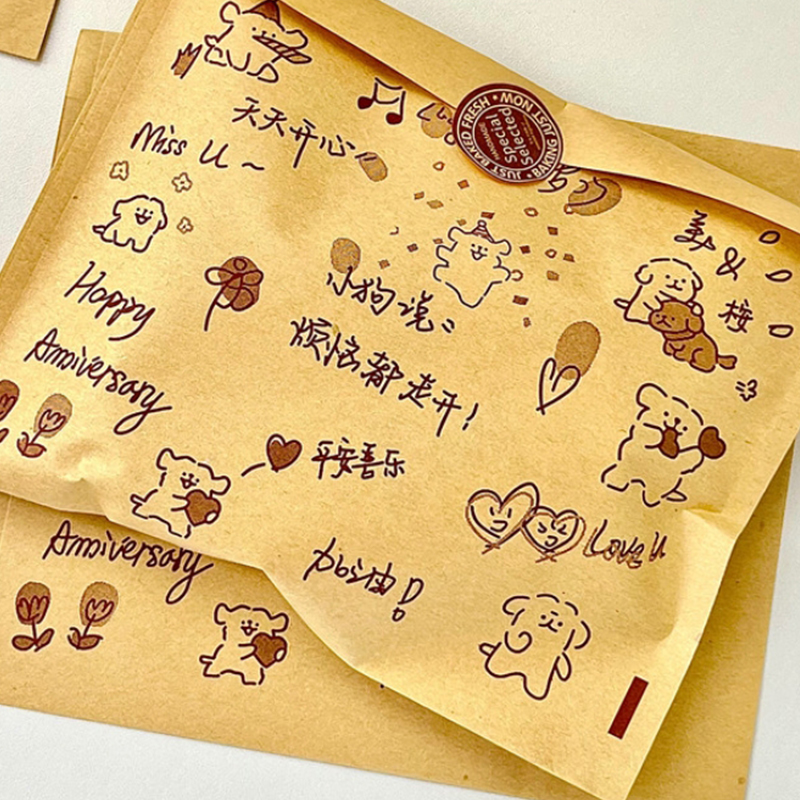 天天开心
JUST BAKED FRESH • BAKING NOW •
Special
Selected
HANDMADE
Miss U ~
小狗说：
烦恼都走开！
Happy
Anniversary
平安喜乐
Love U
加油！
Anniversary